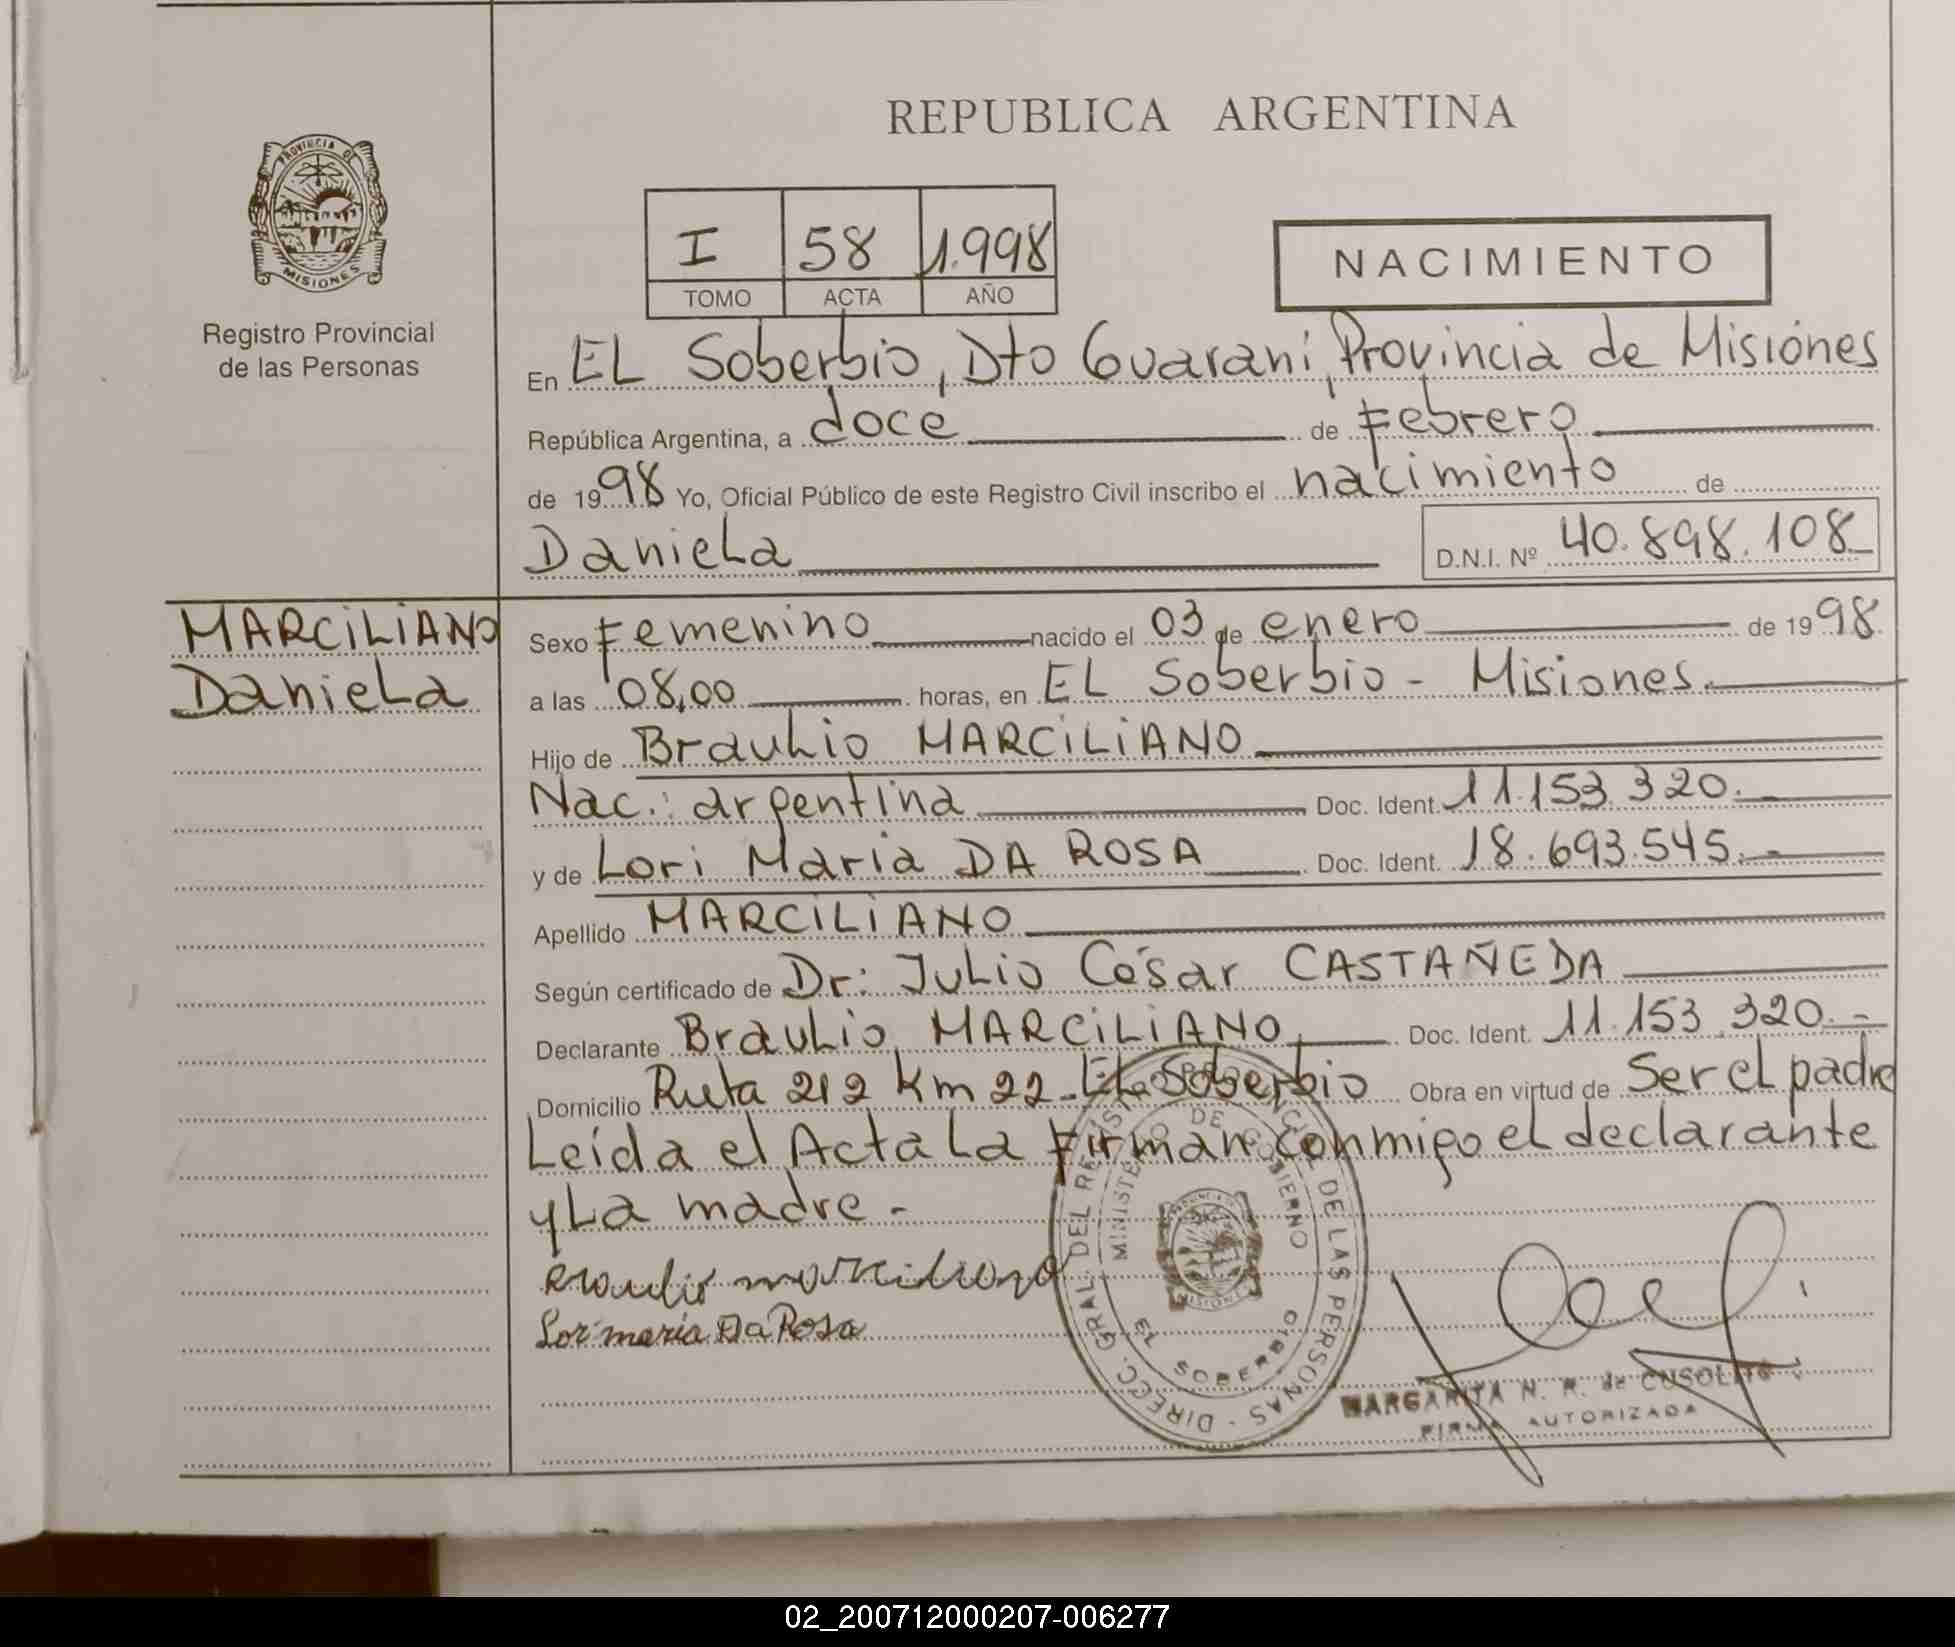 REPUBLICA ARGENTINA
PROVINCIA DE MISIONES
Registro Provincial
de las Personas
I 58 1.998
TOMO ACTA AÑO
NACIMIENTO
En EL Soberbio, Dto Guaraní, Provincia de Misiónes
República Argentina, a doce de Febrero
de 1998 Yo, Oficial Público de este Registro Civil inscribo el nacimiento de
Daniela D.N.I. Nº 40.898.108
MARCILIANO
Daniela
Sexo Femenino nacido el 03 de enero de 1998
a las 08,00 horas, en EL Soberbio - Misiones.
Hijo de Braulio MARCILIANO
Nac.: argentina Doc. Ident. 11.153.320.-
y de Lori Maria DA ROSA Doc. Ident. 18.693.545.-
Apellido MARCILIANO
Según certificado de Dr: Julio César CASTAÑEDA
Declarante Braulio MARCILIANO Doc. Ident. 11.153.320.-
Domicilio Ruta 212 Km 22 - EL Soberbio Obra en virtud de Ser el padre
Leída el Acta La Firman conmigo el declarante
y La madre.-
Braulio marciliano
Lori maria Da Rosa
DIRECC. GRAL. DEL REGISTRO PROVINCIAL DE LAS PERSONAS -
MINISTERIO DE GOBIERNO
EL SOBERBIO
MARGARITA N. R. de CUSOLITO
FIRMA AUTORIZADA
02_200712000207-006277